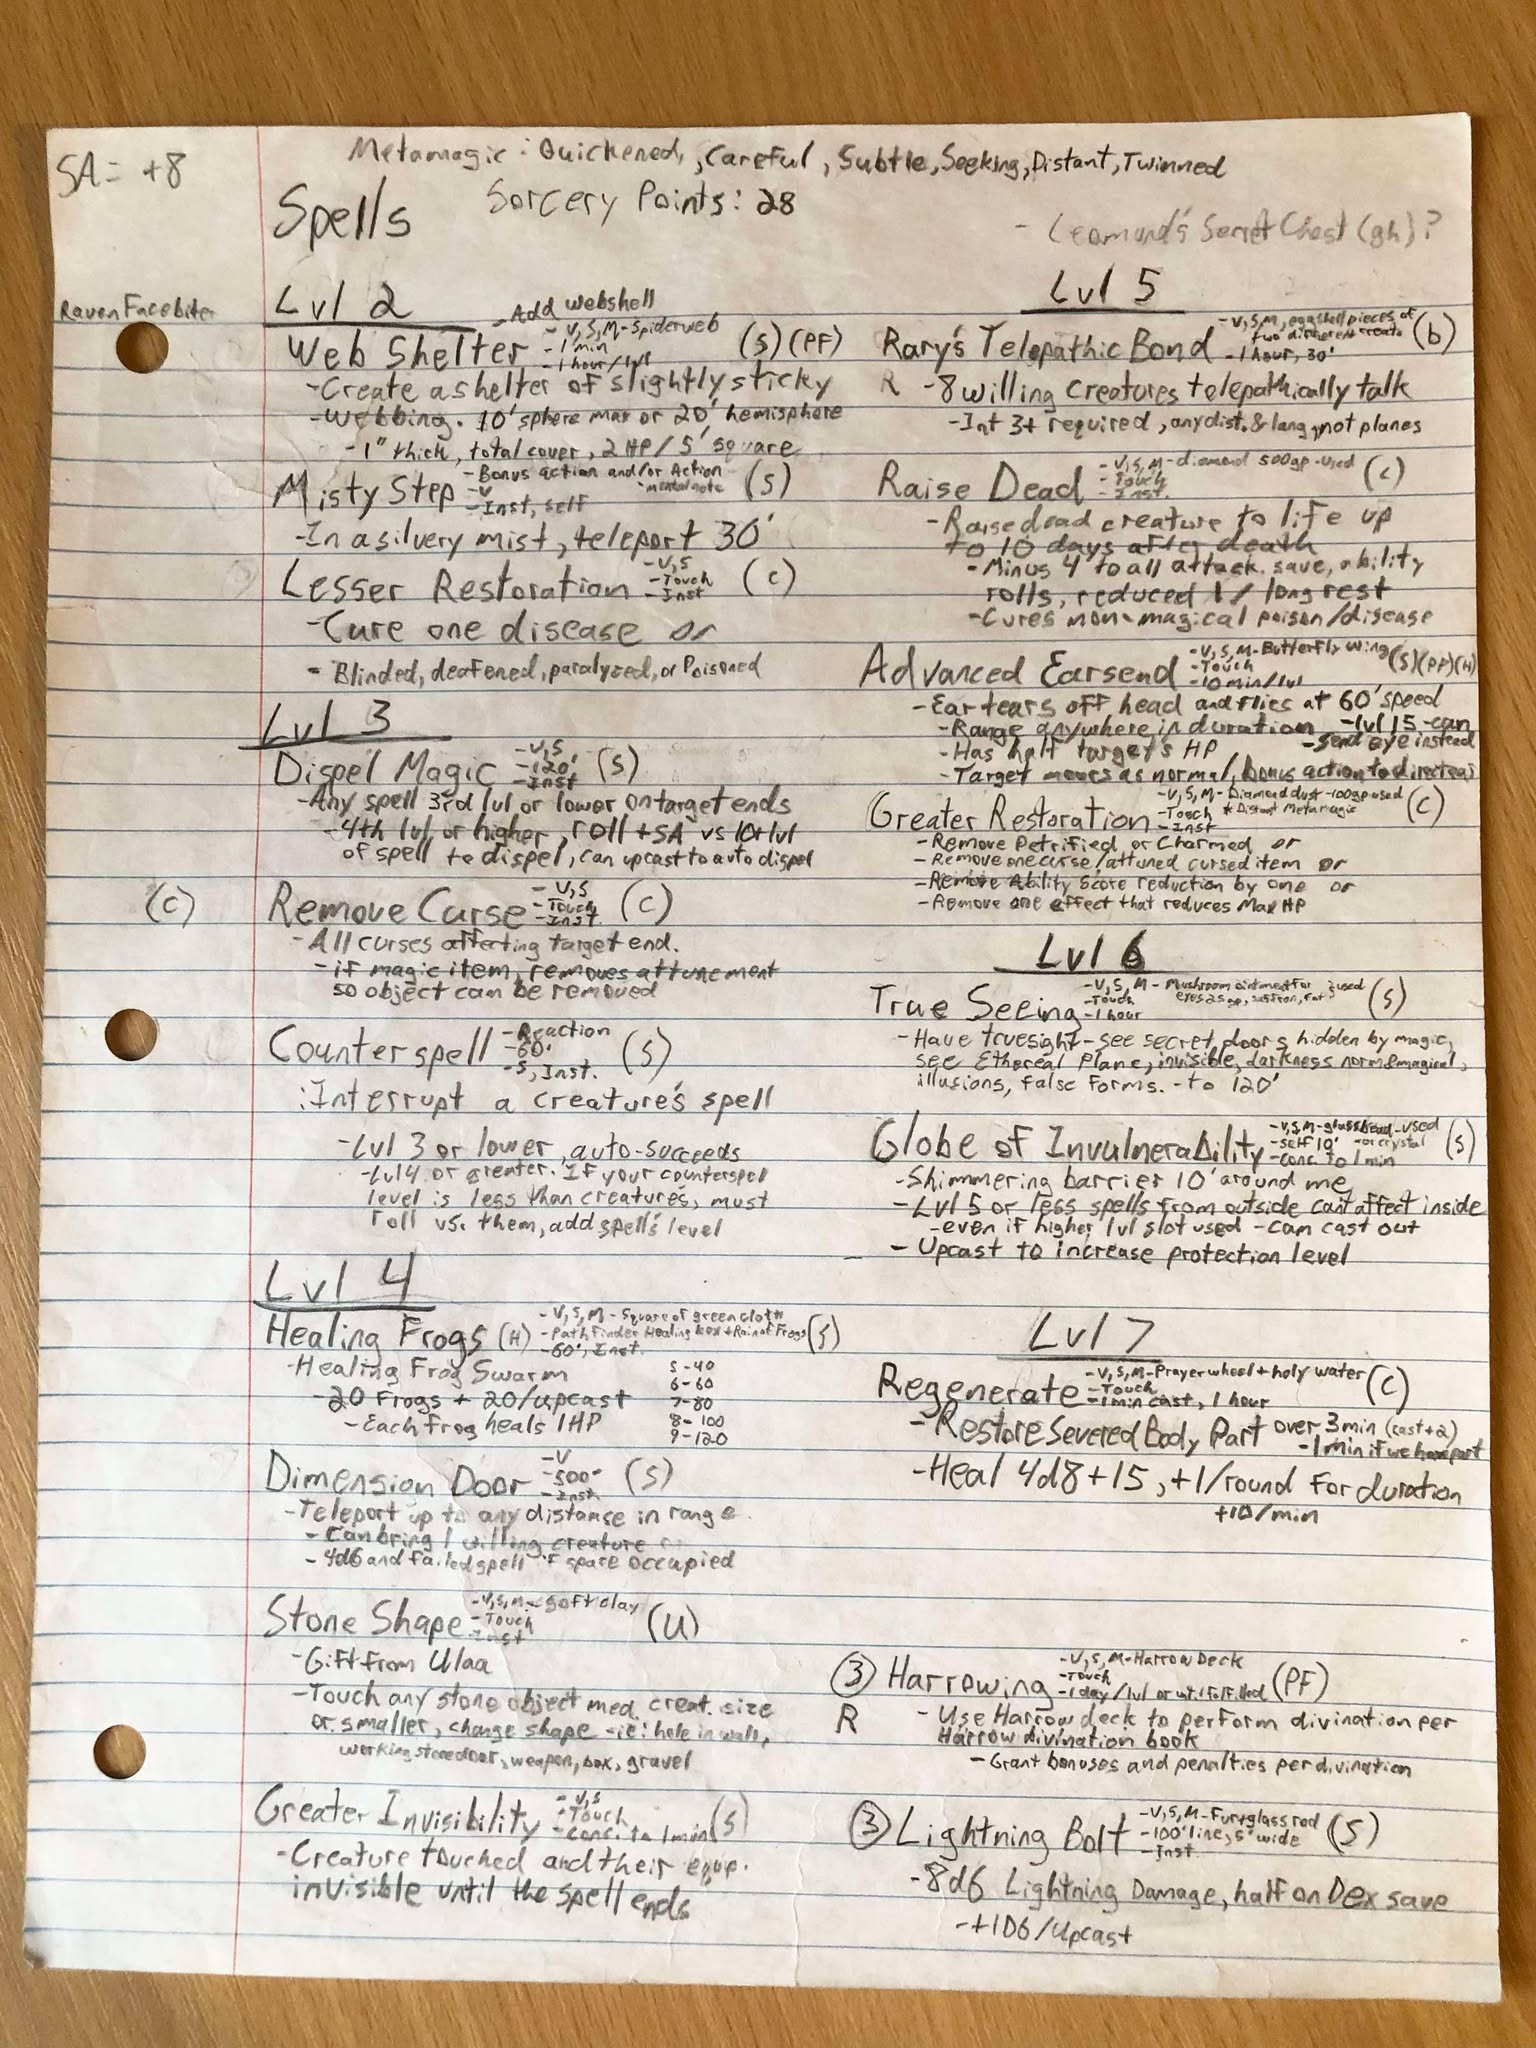 SA = +8
Metamagic: Quickened, Careful, Subtle, Seeking, Distant, Twinned
Spells
Sorcery Points: 28
- Leomund's Secret Chest (gh)?
Raven Facebiter
Lvl 2
- Add webshell
Web Shelter
- V, S, M - Spiderweb
- 1 min
- 1 hour/lvl
(S) (PF)
- Create a shelter of slightly sticky
- Webbing. 10' sphere max or 20' hemisphere
- 1" thick, total cover, 2 HP/5' square
Misty Step
- Bonus action and/or Action
- V
* mental note
- Inst, self
(S)
- In a silvery mist, teleport 30'
Lesser Restoration
- V, S
- Touch
- Inst
(C)
- Cure one disease or
- Blinded, deafened, paralyzed, or Poisoned
Lvl 3
Dispel Magic
- V, S
- 120'
- Inst
(S)
- Any spell 3rd lvl or lower on target ends
- 4th lvl or higher, roll + SA vs 10 + lvl
of spell to dispel, can upcast to auto dispel
(C)
Remove Curse
- V, S
- Touch
- Inst.
(C)
- All curses affecting target end.
- if magic item, removes attunement
so object can be removed
Counterspell
- Reaction
- 60'
- S, Inst.
(S)
: Interrupt a creature's spell
- Lvl 3 or lower, auto-succeeds
- Lvl 4 or greater. If your counterspel
level is less than creatures, must
roll vs. them, add spell's level
Lvl 4
Healing Frogs (H)
- V, S, M - Square of green cloth
- Path Finder Healing hex + Rain of Frogs
- 60', Inst.
(S)
- Healing Frog Swarm
- 20 Frogs + 20/upcast
- Each frog heals 1 HP
5 - 40
6 - 60
7 - 80
8 - 100
9 - 120
Dimension Door
- V
- 500'
- Inst
(S)
- Teleport up to any distance in range.
- Can bring 1 willing creature
- 4d6 and failed spell if space occupied
Stone Shape
- V, S, M - soft clay
- Touch
- Inst
(U)
- Gift from Ulaa
- Touch any stone object med. creat. size
or smaller, change shape - ie: hole in wall,
working stone door, weapon, box, gravel
Greater Invisibility
- V, S
- Touch
- Conc. to 1 min
(S)
- Creature touched and their equip.
invisible until the spell ends
Lvl 5
Rary's Telepathic Bond
- V, S, M, eggshell pieces of
two different creats
- 1 hour, 30'
(b)
R - 8 willing creatures telepathically talk
- Int 3+ required, any dist. & lang, not planes
Raise Dead
- V, S, M - diamond 500gp - used
- Touch
- Inst.
(C)
- Raise dead creature to life up
to 10 days after death
- Minus 4 to all attack, save, ability
rolls, reduced 1 / long rest
- Cures non-magical poison/disease
Advanced Earsend
- V, S, M - Butterfly wing
- Touch
- 10 min/lvl
(S)(PF)(H)
- Ear tears off head and flies at 60' speed
- Range anywhere in duration
- lvl 15 - can
- send eye instead
- Has half target's HP
- Target moves as normal, bonus action to direct ear
Greater Restoration
- V, S, M - Diamond dust - 100gp used
- Touch
* Distant Metamagic
- Inst
(C)
- Remove Petrified or Charmed or
- Remove one curse/attuned cursed item or
- Remove Ability Score reduction by one or
- Remove one effect that reduces Max HP
Lvl 6
True Seeing
- V, S, M - Mushroom ointment for
eyes 25gp, saffron, fat } used
- Touch
- 1 hour
(S)
- Have truesight - see secret doors hidden by magic,
see Ethereal Plane, invisible, darkness norm & magical,
illusions, false forms. - to 120'
Globe of Invulnerability
- V, S, M - glass bead - used
- or crystal
- self 10'
- conc. to 1 min
(S)
- Shimmering barrier 10' around me
- Lvl 5 or less spells from outside can't affect inside
- even if higher lvl slot used - can cast out
- Upcast to increase protection level
Lvl 7
Regenerate
- V, S, M - Prayer wheel + holy water
- Touch
- 1 min cast, 1 hour
(C)
- Restore Severed Body Part over 3 min (cast + 2)
- 1 min if we have part
- Heal 4d8 + 15, +1/round for duration
+10/min
③ Harrowing
- V, S, M - Harrow Deck
- Touch
- 1 day/lvl or until fulfilled
(PF)
R - Use Harrow deck to perform divination per
Harrow divination book
- Grant bonuses and penalties per divination
③ Lightning Bolt
- V, S, M - Fur + glass rod
- 100' line, 5' wide
- Inst
(S)
- 8d6 Lightning Damage, half on Dex save
- +1D6/Upcast